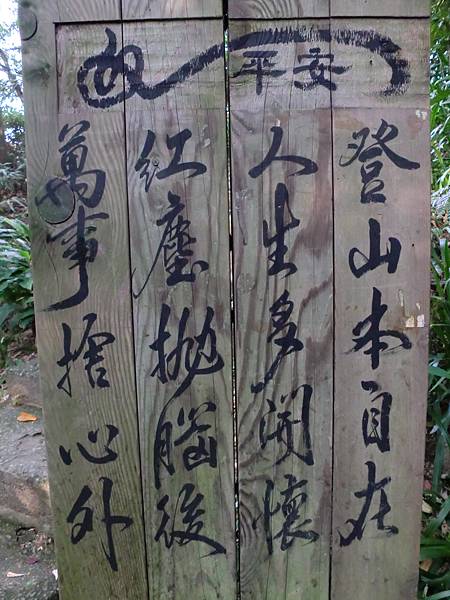 平安
登山本自在
人生多開懷
紅塵拋腦後
萬事捨心外